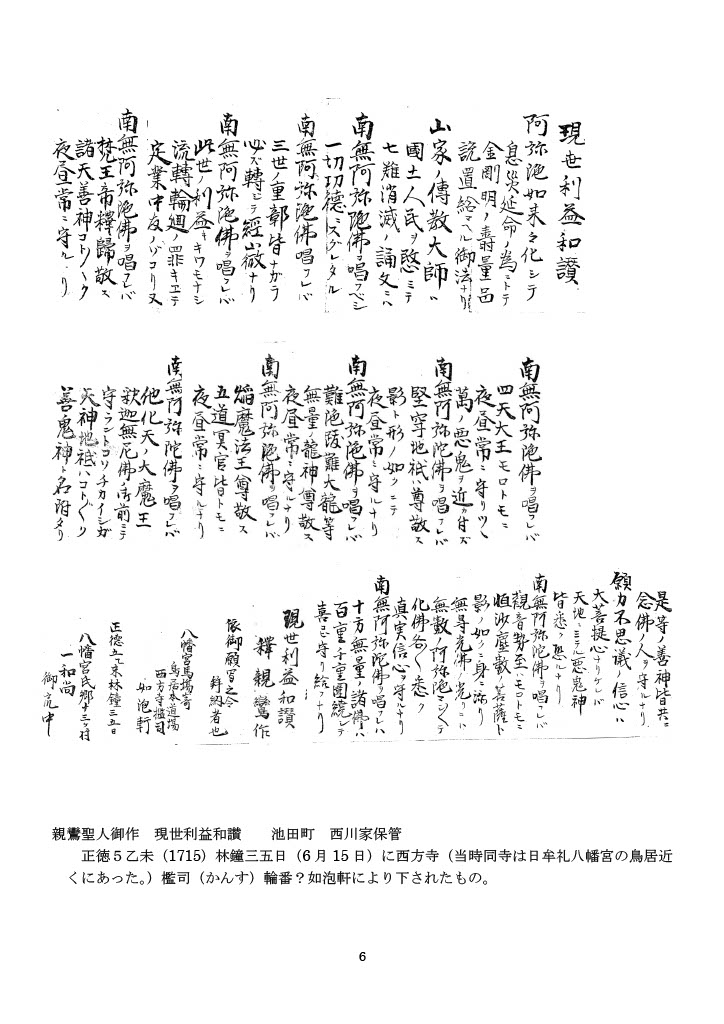 現世利益和讃
阿弥陀如来々化シテ
息災延命ノ為ニトテ
金剛明ノ壽量品
説置給ヘル御法ナリ
山家ノ傳教大師ハ
國土人民ヲ愍ミテ
七難消滅ノ誦文ニハ
南無阿弥陀佛ヲ唱フベシ
一切功德ニスグレタル
南無阿弥陀佛ヲ唱フレバ
三世ノ重障皆ナガラ
必ズ轉ジテ經㣲ナリ
南無阿弥陀佛ヲ唱フレバ
此世ノ利益キワモナシ
流轉輪廻ノ罪キエテ
定業中夭ノゾコリヌ
南無阿弥陀佛ヲ唱フレバ
梵王帝釋歸敬ス
諸天善神コトゴトク
夜昼常ニ守ルナリ
南無阿弥陀佛ヲ唱フレバ
四天大王モロトモニ
夜昼常ニ守リツヽ
萬ノ悪鬼ヲ近ヅ付ズ
南無阿弥陀佛ヲ唱フレバ
堅牢地祇ハ尊敬ス
影ト形ノ如クニテ
夜昼常ニ守ルナリ
南無阿弥陀佛ヲ唱フレバ
難陀䟦難大龍等
無量ノ龍神尊敬ス
夜昼常ニ守ルナリ
南無阿弥陀佛ヲ唱フレバ
焔魔法王尊敬ス
五道冥官皆トモニ
夜昼常ニ守ルナリ
南無阿弥陀佛ヲ唱フレバ
他化天ノ大魔王
釈迦無尼佛ノ御前ニテ
守ラントコソチカイシガ
天神地祇ハコトゴトク
善鬼神ト名附タリ
是等ノ善神皆共ニ
念佛ノ人ヲ守ルナリ
願力不思議ノ信心ハ
大菩提心ナリケレバ
天地ニミテル悪鬼神
皆悉ク恐ルナリ
南無阿弥陀佛ヲ唱フレバ
觀音勢至ハモロトモニ
恒沙塵數ノ菩薩ト
影ノ如クニ身ニ添リ
無㝵光佛ノ光リニハ
無數ノ阿弥陀マシ〱テ
化佛各〱悉ク
真実信心ヲ守ルナリ
南無阿弥陀佛ヲ唱フレバ
十方無量ノ諸佛ハ
百重千重圍繞シテ
喜ビ守リ給ヘナリ
現世利益和讃
釋親鸞作
依御願写之令
拝納者也
八幡宮馬場奇
鳥居本道場
西方寺檻司
如泡軒
正徳五乙未林鐘三五日
八幡宮氏郷十三ヶ村
一和尚
御衆中
親鸞聖人御作　現世利益和讃　　池田町　西川家保管
正徳５乙未（1715）林鐘三五日（6 月 15 日）に西方寺（当時同寺は日牟礼八幡宮の鳥居近
くにあった。）檻司（かんす）輪番？如泡軒により下されたもの。
6